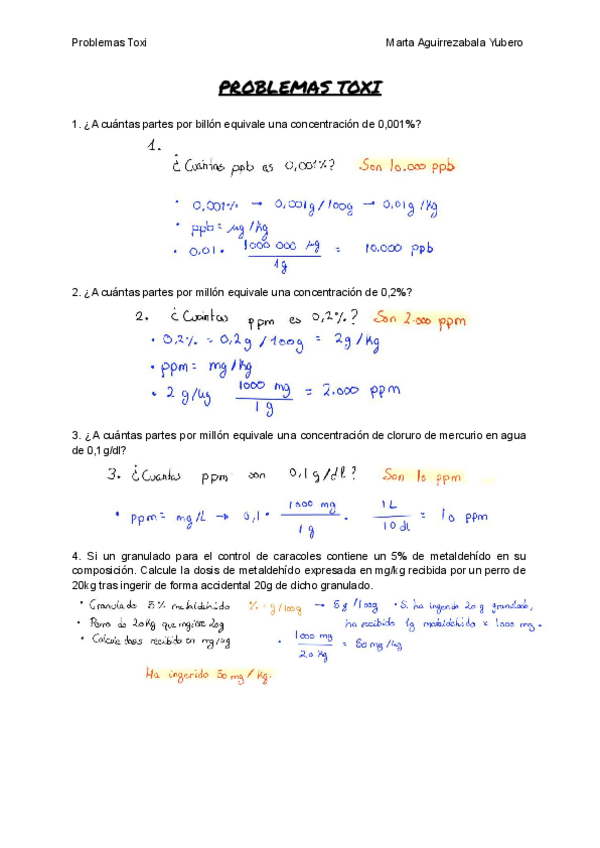 Problemas Toxi Marta Aguirrezabala Yubero
PROBLEMAS TOXI
1. ¿A cuántas partes por billón equivale una concentración de 0,001%?
1.
¿Cuántas ppb es 0,001%? Son 10.000 ppb
• 0,001% → 0,001g/100g → 0,01g/kg
• ppb = µg/kg
• 0,01 · 1000 000 µg / 1g = 10.000 ppb
2. ¿A cuántas partes por millón equivale una concentración de 0,2%?
2. ¿Cuántas ppm es 0,2%? Son 2.000 ppm
• 0,2% = 0,2g/100g = 2g/kg
• ppm = mg/kg
• 2 g/kg 1000 mg / 1g = 2.000 ppm
3. ¿A cuántas partes por millón equivale una concentración de cloruro de mercurio en agua
de 0,1g/dl?
3. ¿Cuantas ppm son 0,1g/dl? Son 10 ppm
• ppm = mg/L → 0,1 · 1000 mg / 1g · 1L / 10 dl = 10 ppm
4. Si un granulado para el control de caracoles contiene un 5% de metaldehído en su
composición. Calcule la dosis de metaldehído expresada en mg/kg recibida por un perro de
20kg tras ingerir de forma accidental 20g de dicho granulado.
• Granulado 5% metaldehido % = g/100g → 5g/100g • Si ha ingerido 20g granulado,
• Perro de 20kg que ingiere 20g ha recibido 1g metaldehido × 1000 mg.
• Calcula dosis recibida en mg/kg • 1000 mg / 20 kg = 50 mg/kg
Ha ingerido 50 mg/kg.